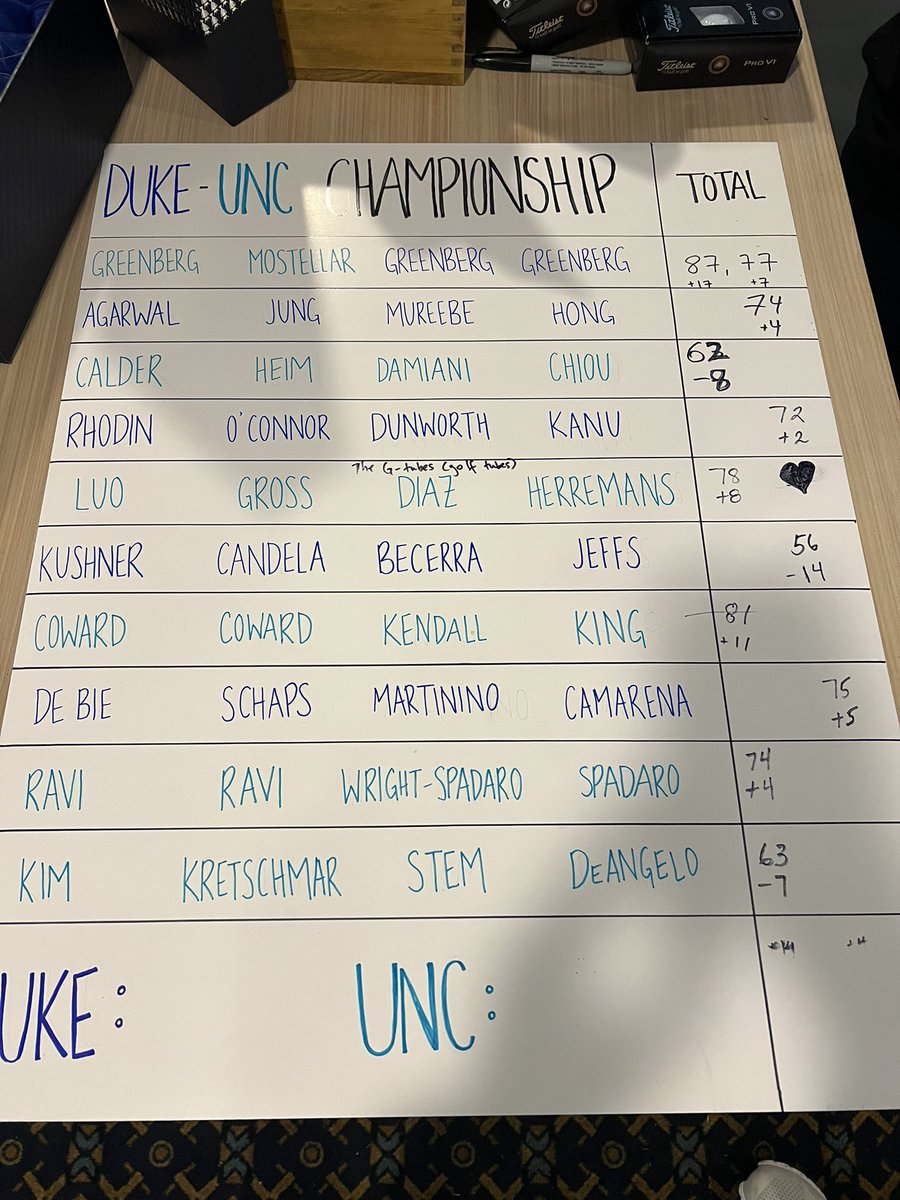 Titleist
Titleist
PRO V1
PRO V1
DUKE - UNC CHAMPIONSHIP TOTAL
GREENBERG MOSTELLAR GREENBERG GREENBERG 87, 77
+17 +7
AGARWAL JUNG MUREEBE HONG 74
+4
CALDER HEIM DAMIANI CHIOU 62
-8
RHODIN O'CONNOR DUNWORTH KANU 72
+2
The G-tubes (golf tubes)
LUO GROSS DIAZ HERREMANS 78
+8
KUSHNER CANDELA BECERRA JEFFS 56
-14
COWARD COWARD KENDALL KING 81
+11
DE BIE SCHAPS MARTININO CAMARENA 75
+5
RAVI RAVI WRIGHT-SPADARO SPADARO 74
+4
KIM KRETSCHMAR STEM DeANGELO 63
-7
UKE: UNC: